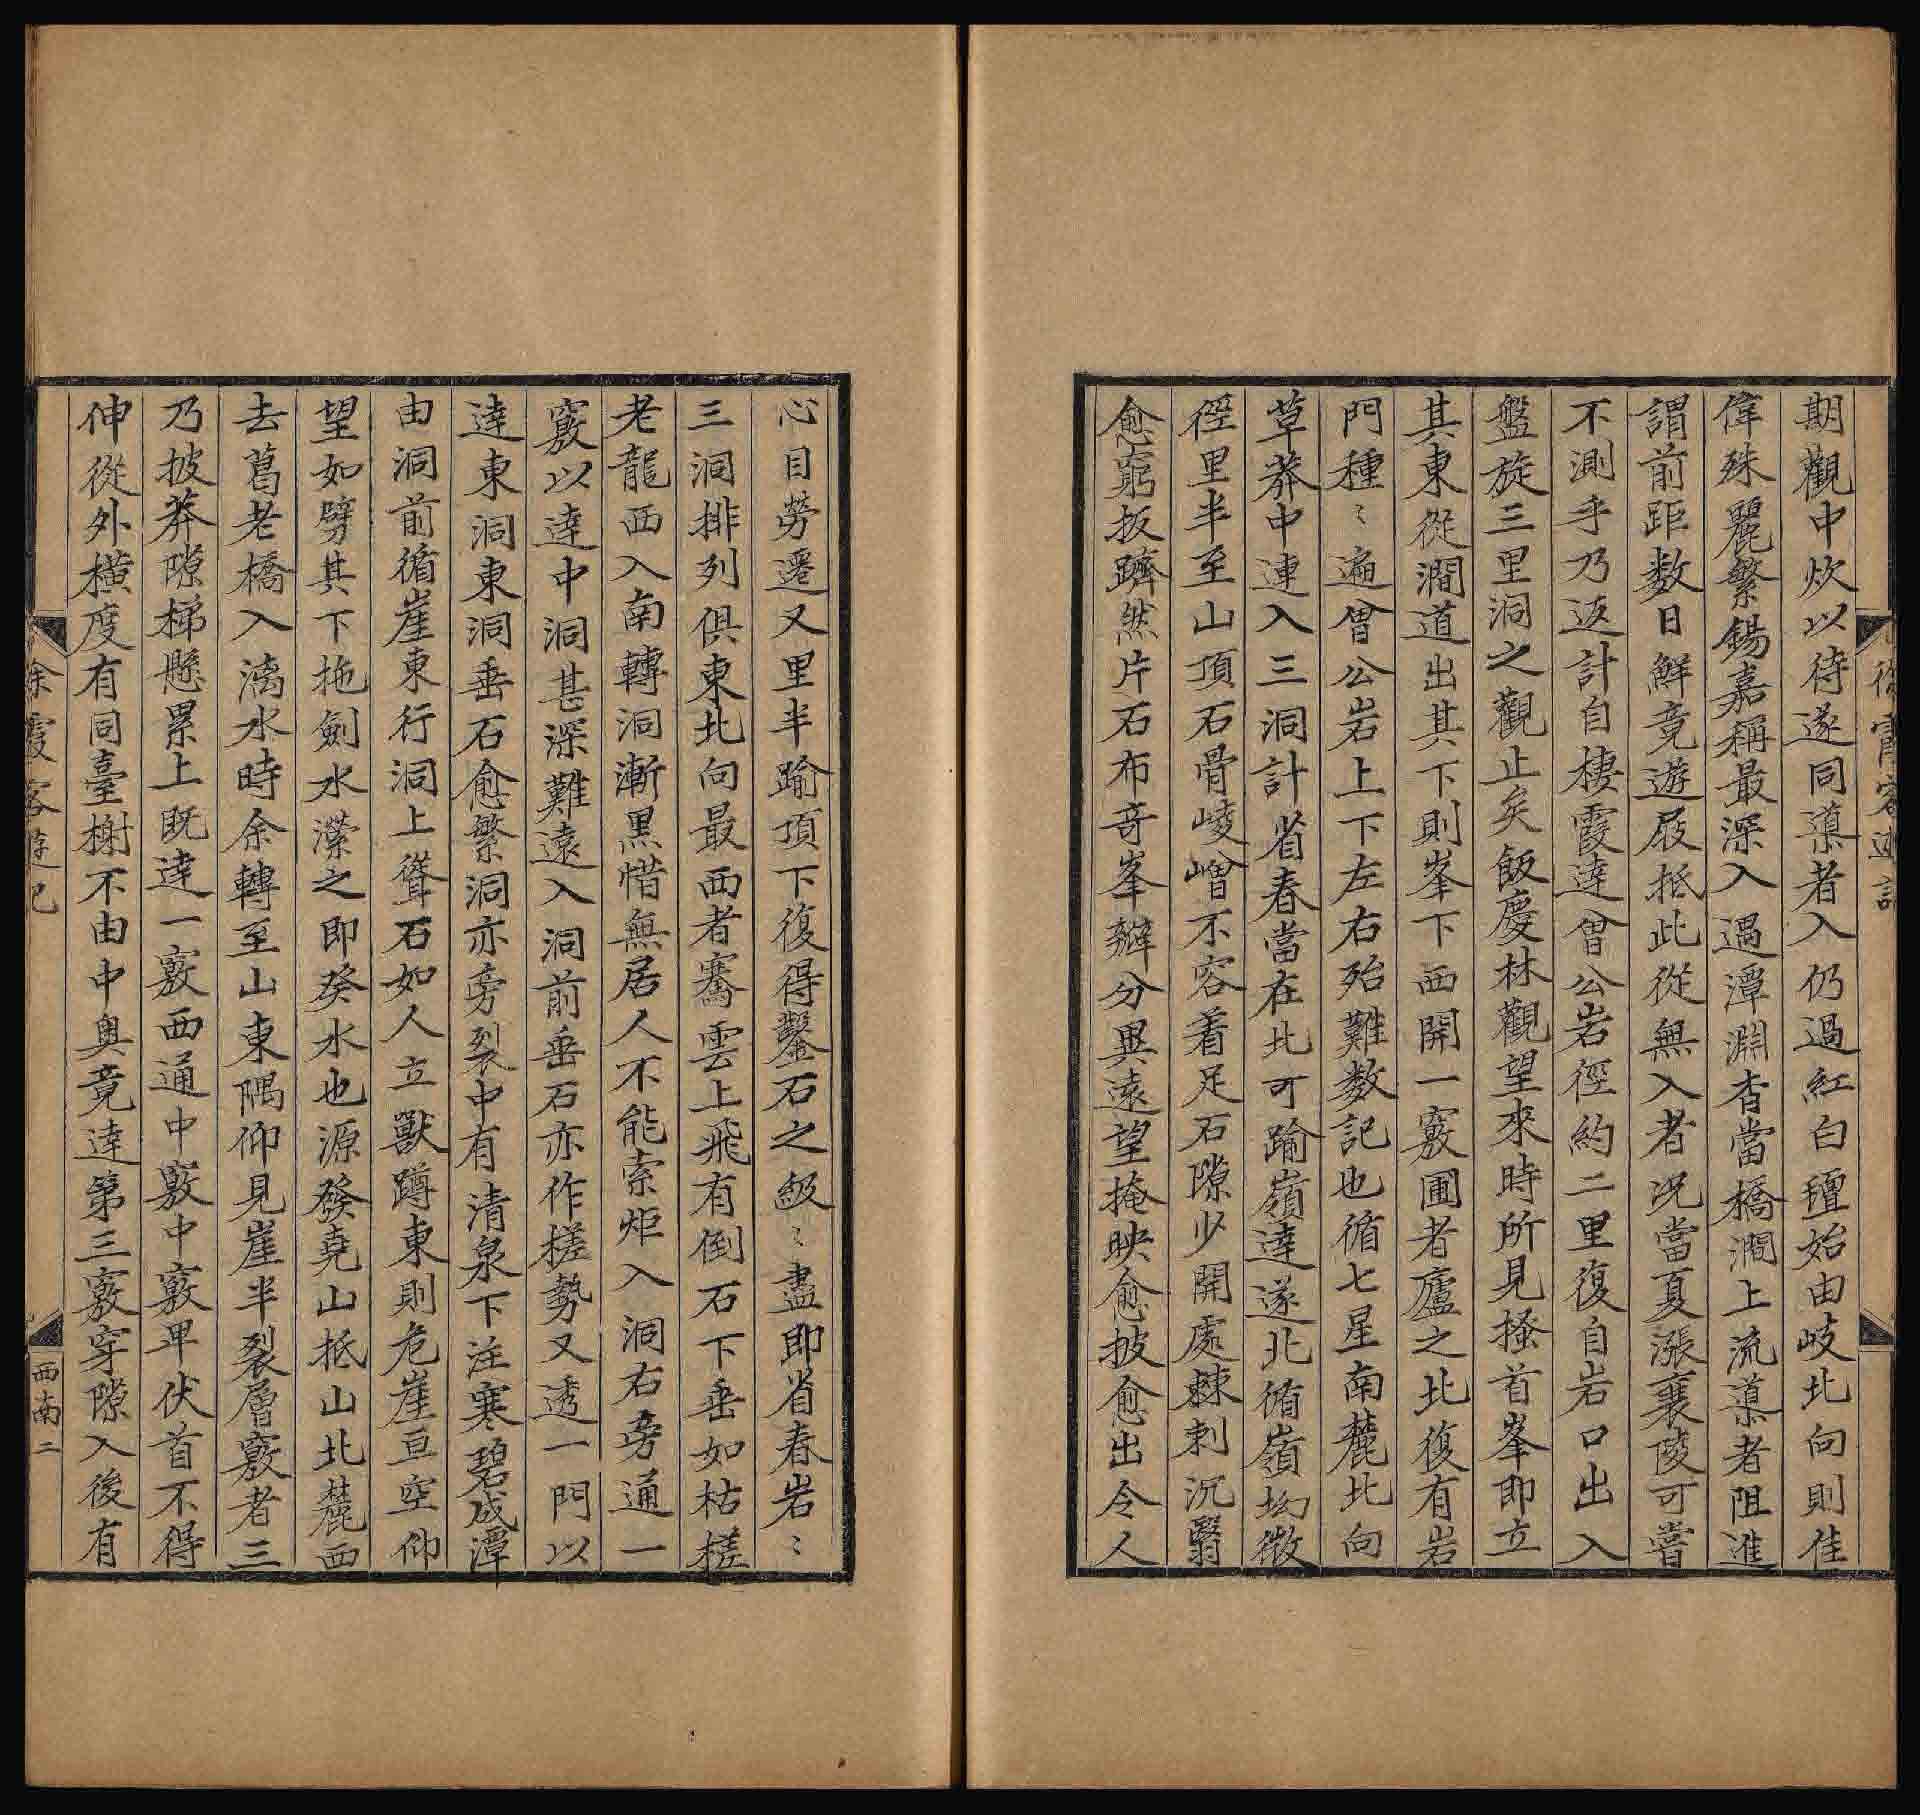 徐霞客遊記
期觀中炊以待遂同導者入仍過紅白氊始由岐北向則佳
偉殊麗繁錫嘉稱最深入遇潭淵杳當橋澗上流導者阻進
謂前距數日鮮竟遊屐抵此從無入者況當夏漲襄陵可嘗
不測乎乃返計自棲霞達曾公岩徑約二里復自岩口出入
盤旋三里洞之觀止矣飯慶林觀望來時所見搔首峯即立
其東從澗道出其下則峯下西開一竅圃者廬之北復有岩
門種〻遍曾公岩上下左右殆難數記也循七星南麓北向
草莽中連入三洞計省春當在北可踰嶺達遂北循嶺坳微
徑里半至山頂石骨崚嶒不容着足石隙少開處棘刺沉翳
愈窮扳躋然片石布奇峯瓣分異遠望掩映愈披愈出令人
心目勞遷又里半踰頂下復得鑿石之級〻盡即省春岩〻
三洞排列俱東北向最西者騫雲上飛有倒石下垂如枯槎
老龍西入南轉洞漸黑惜無居人不能索炬入洞右旁通一
竅以達中洞甚深難遠入洞前垂石亦作槎勢又透一門以
達東洞東洞垂石愈繁洞亦旁裂中有清泉下注寒碧成潭
由洞前循崖東行洞上聳石如人立獸蹲東則危崖亘空仰
望如劈其下拖劍水瀠之即癸水也源發堯山抵山北麓西
去葛老橋入漓水時余轉至山東隅仰見崖半裂層竅者三
乃披莽隙梯懸累上既達一竅西通中竅中竅卑伏首不得
伸從外橫度有同臺榭不由中奧竟達第三竅穿隙入後有
徐霞客遊記
西南二